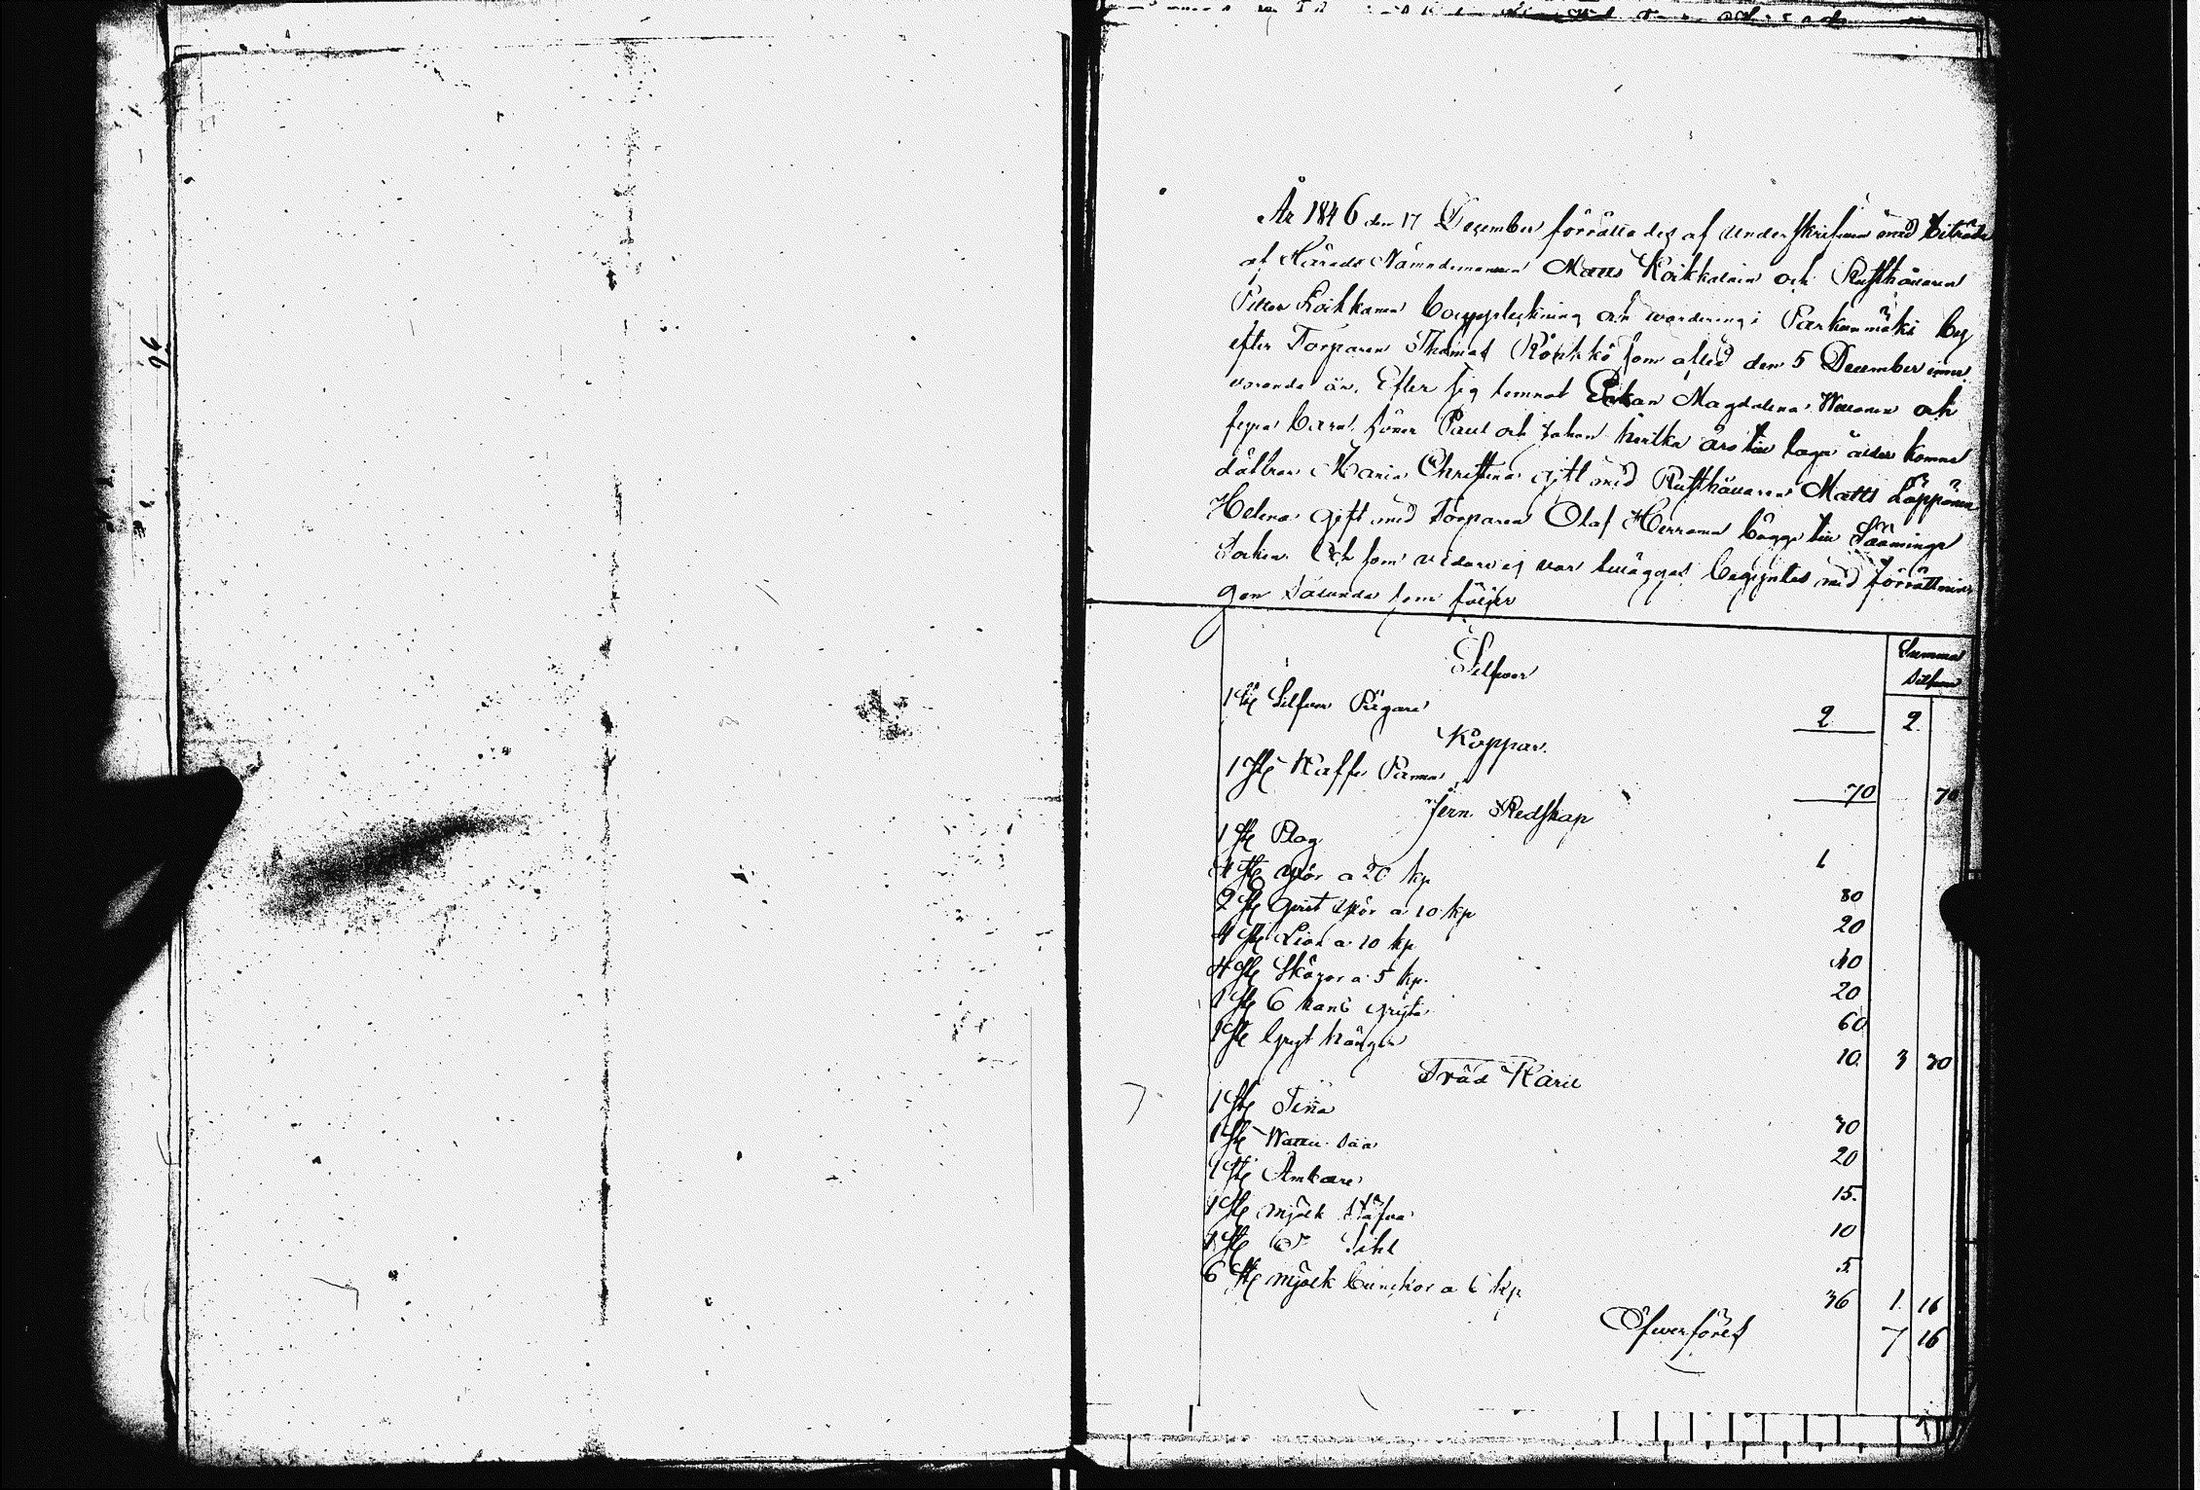 96
År 1846 den 17 December förrättades af underskrifven med biträde
af Härads Nämndemannen Matts Koikkalain och Rusthållaren
Petter Loikkanen bouppteckning och wärdering i Parkunmäki by
efter Torparen Thomas Rönkkö som afled den 5 December inne
varande år. Efter sig lemnat Enkan Magdalena och
fyra barn. söner Paul och Johan hvilka äro till laga ålder komne
döttrar Maria Christina gift med Rusthållaren Matts Loppönen
Helena gift med Torparen Olof Herranen bägge till Sääminge
Socken. Och som vidare ej var tillägges begyntes med förrättnin
gen sålunda som följer
Summa
Silfver
Silfver
1 St Silfver Bägare 2 2
Koppar.
1 St Kaffe Panna 70 70
Jern Redskap
1 St Plog 1
4 St yxor a 20 kp 80
2 St a 10 kp 20
4 St Liar a 10 kp 40
4 St Skäror a 5 kp. 20
1 St 6 kans gryta 60
1 St Gryt hängen 10 3 30
Träd Käril
1 St Tina 30
1 St Watten Så 20
1 St Ämbare 15.
1 St mjölk stäfva 10
1 St Do Sihl 5.
6 St mjölk bunckor a 6 kp 36 1. 16
Öfwerföres 7 16